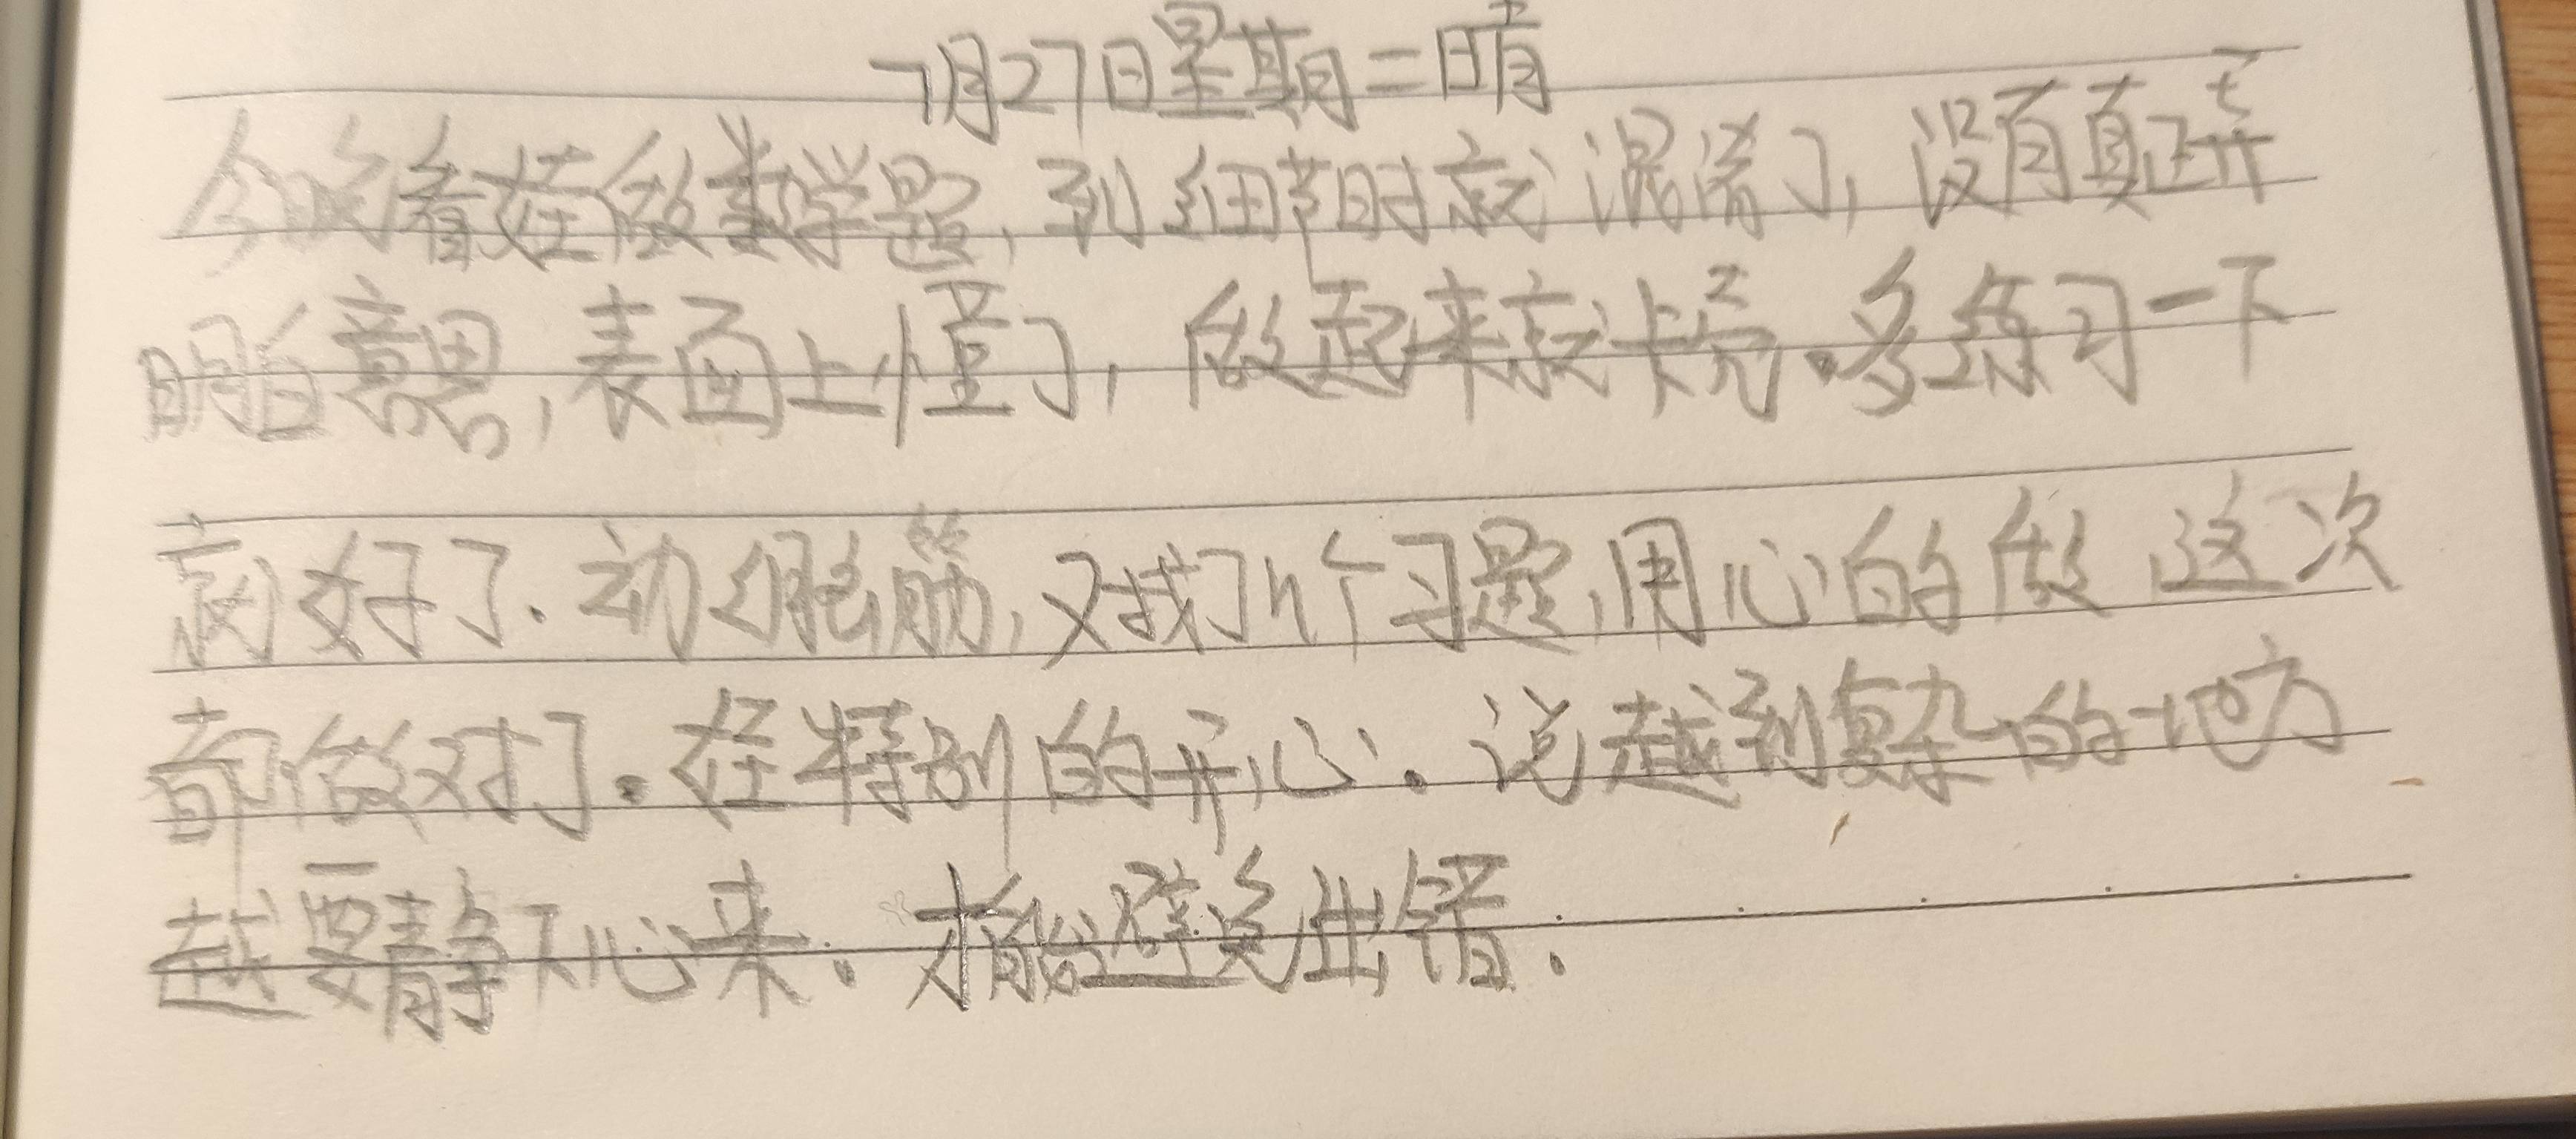 7月27日星期二晴
今晚看娃做数学题,到细节时就混淆了,没有真正弄
明白意思,表面上懂了,做起来就卡壳.多练习一下
就好了.动动脑筋,又找了几个习题,用心的做 这次
都做对了.娃特别的开心.说越到复杂的地方
越要静下心来.才能避免出错.